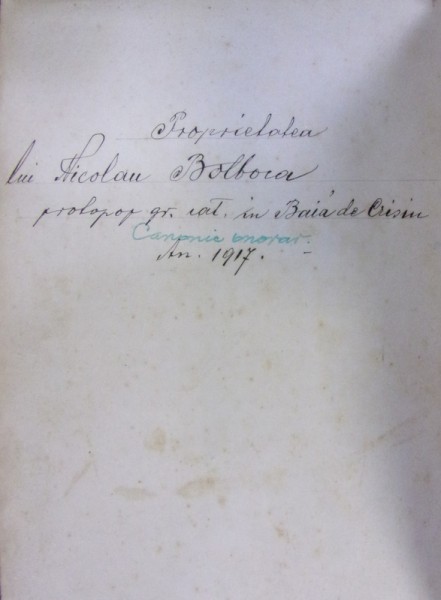 Proprietatea
lui Nicolau Bolboca
protopop gr. cat. in Baia de Crisiu
Canonic onorar.
An. 1917. –